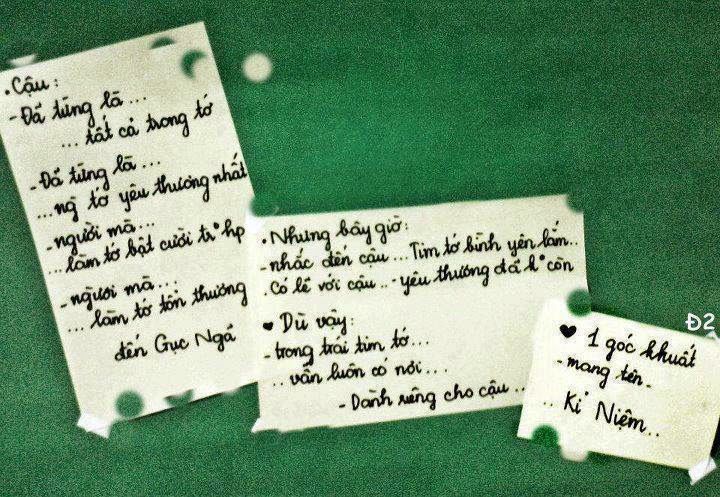 . Cậu :
- Đã từng là ...
... tất cả trong tớ
- Đã từng là ...
... ng` tớ yêu thương nhất
- người mà ...
... làm tớ bật cười tr° hp
- người mà ...
... làm tớ tổn thương
đến Gục Ngã
. Nhưng bây giờ :
- nhắc đến cậu ... Tim tớ bình yên lắm ..
. Có lẽ với cậu .. - yêu thương đã k° còn
♥ Dù vậy :
- trong trái tim tớ ...
.. vẫn luôn có nơi ...
- Dành riêng cho cậu ..
Đ2
♥ 1 góc khuất
- mang tên -
.. Kỉ Niệm ..